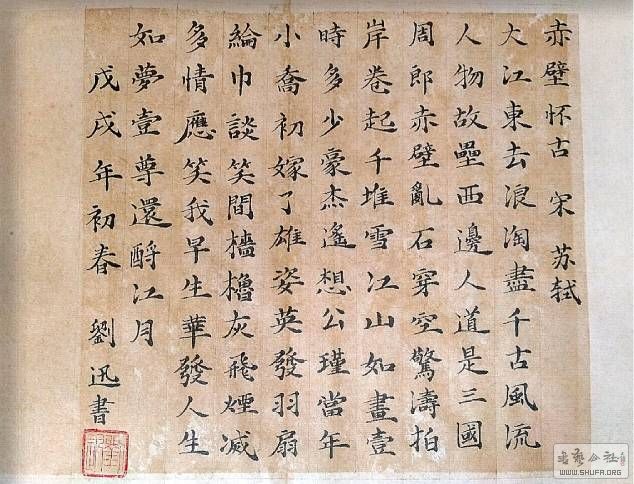 赤壁怀古 宋 苏轼
大江東去浪淘盡千古風流
人物故壘西邊人道是三國
周郎赤壁亂石穿空驚濤拍
岸卷起千堆雪江山如畫壹
時多少豪杰遙想公瑾當年
小喬初嫁了雄姿英發羽扇
綸巾談笑間檣櫓灰飛煙减
多情應笑我早生華發人生
如夢壹尊還酹江月
戊戌年初春 劉迅書
书艺公社
WWW.SHUFA.ORG